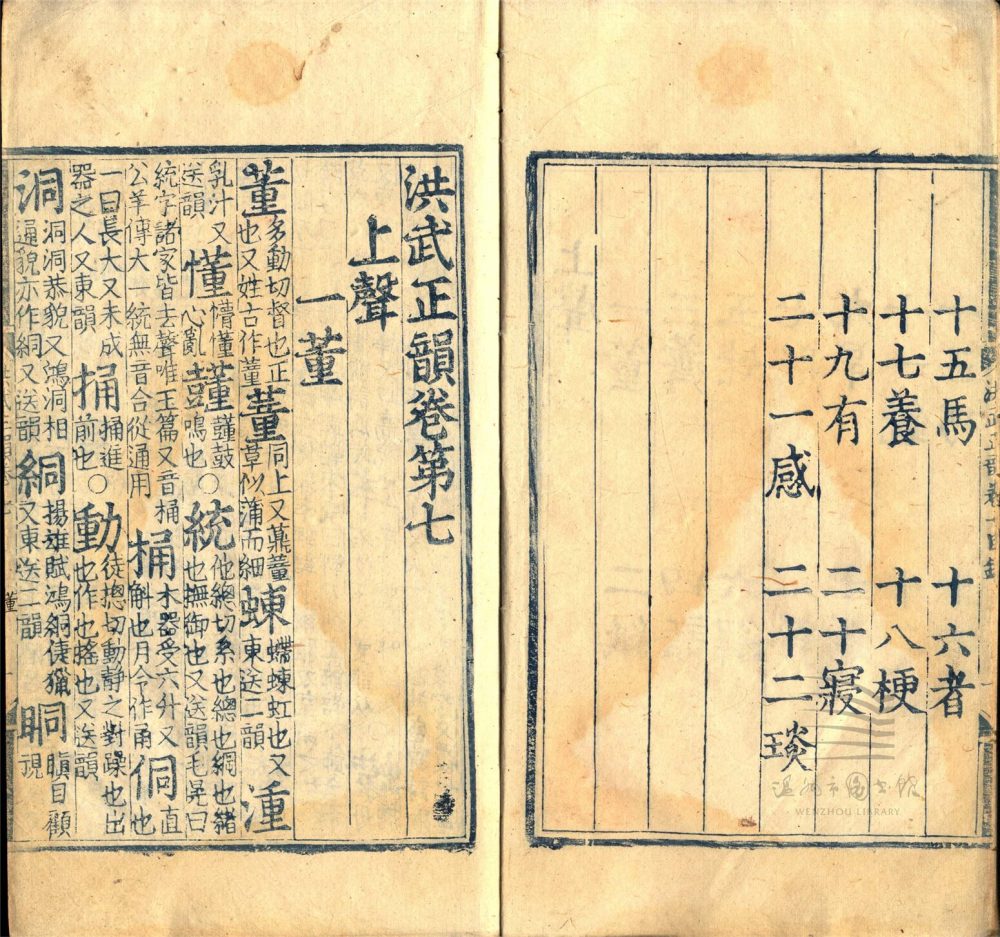 十五馬 十六者
十七養 十八梗
十九有 二十寢
二十一感 二十二琰
WENZHOU LIBRARY
洪武正韻卷第七
上聲
一董
董多動切督也正也又姓古作蕫蕫同上又薡蕫草似蒲而細蝀蠕蝀虹也又東送二韻湩
乳汁又送韻懂懵懂心亂鼓鳴也○統他總切系也總也綱也緒也撫御也又送韻毛晃曰
統字諸家皆去聲唯玉篇又音桶公羊傳大一統無音合從通用桶木器受六升又斛也月令作甬侗直也
一曰長大又未成器之人又東韻捅捅進前也○動徒摠切動靜之對躁也出也作也搖也又送韻
洞洞洞恭貌又鴻洞相逼貌亦作絧又送韻絧揚雄賦鴻絧緁獵又東送二韻眮瞋目顧視